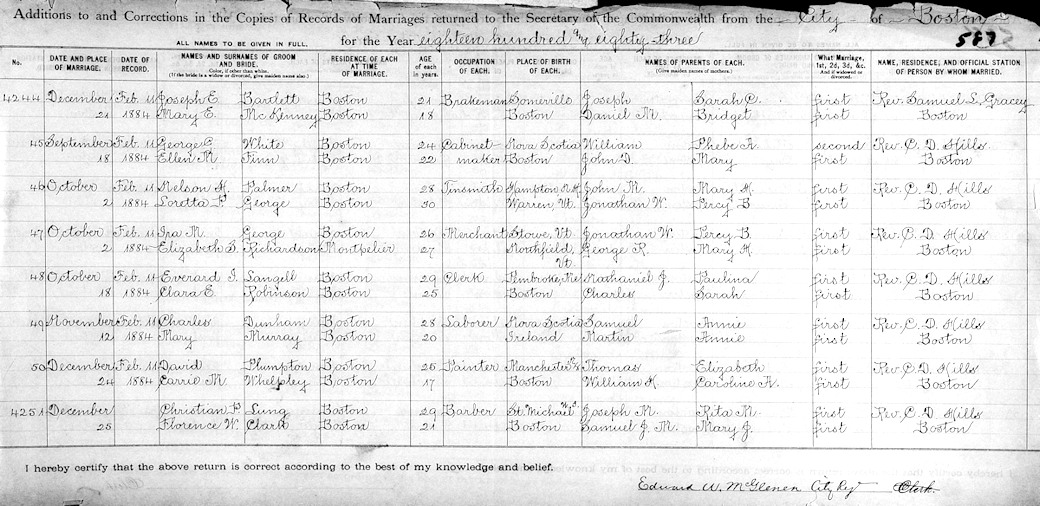 Additions to and Corrections in the Copies of Records of Marriages returned to the Secretary of the Commonwealth from the City of Boston
for the Year eighteen hundred and eighty-three
587
ALL NAMES TO BE GIVEN IN FULL.
No. DATE AND PLACE OF MARRIAGE. DATE OF RECORD. NAMES AND SURNAMES OF GROOM AND BRIDE. Color, if other than white. (If the bride is a widow or divorced, give maiden name also.) RESIDENCE OF EACH AT TIME OF MARRIAGE. AGE of each in years. OCCUPATION OF EACH. PLACE OF BIRTH OF EACH. NAMES OF PARENTS OF EACH. (Give maiden names of mothers.) What Marriage, 1st, 2d, 3d, &c. And if widowed or divorced. NAME, RESIDENCE, AND OFFICIAL STATION OF PERSON BY WHOM MARRIED.
4244 December Feb. 11 Joseph E. Bartlett Boston 21 Brakeman Somerville Joseph Sarah C. first Rev. Samuel L. Gracey
21 1884 Mary E. McKinney Boston 18 Boston Daniel M. Bridget first Boston
45 September Feb. 11 George G. White Boston 24 Cabinet- Nova Scotia William Phebe A. second Rev. C. D. Hills
18 1884 Ellen M. Finn Boston 22 maker Boston John D. Mary first Boston
46 October Feb. 11 Nelson H. Palmer Boston 28 Tinsmith Hampton, N.H. John M. Mary H. first Rev. C. D. Hills
2 1884 Loretta P. George Boston 30 Warren, Vt. Jonathan W. Percy B. first Boston
47 October Feb. 11 Ira M. George Boston 26 Merchant Stowe, Vt Jonathan W. Percy B. first Rev. C. D. Hills
2 1884 Elizabeth Richardson Montpelier 27 Northfield, Vt. George R. Mary H. first Boston
48 October Feb. 11 Everard I. Langell Boston 29 Clerk Pembroke, Me Nathaniel J. Paulina first Rev. C. D. Hills
18 1884 Clara E. Robinson Boston 25 Boston Charles Sarah first Boston
49 November Feb. 11 Charles Dunham Boston 28 Laborer Nova Scotia Samuel Annie first Rev. C. D. Hills
12 1884 Mary Murray Boston 20 Ireland Martin Annie first Boston
50 December Feb. 11 David Plumpton Boston 25 Painter Manchester Thomas Elizabeth first Rev. C. D. Hills
24 1884 Carrie M. Whelpley Boston 17 Boston William H. Caroline A. first Boston
4251 December Christian P. Lung Boston 29 Barber St. Michael Joseph M. Rita M. first Rev. C. D. Hills
25 Florence W. Clark Boston 21 Boston Samuel J. M. Mary J. first Boston
I hereby certify that the above return is correct according to the best of my knowledge and belief.
Edward W. McGlenen City Reg Clerk.